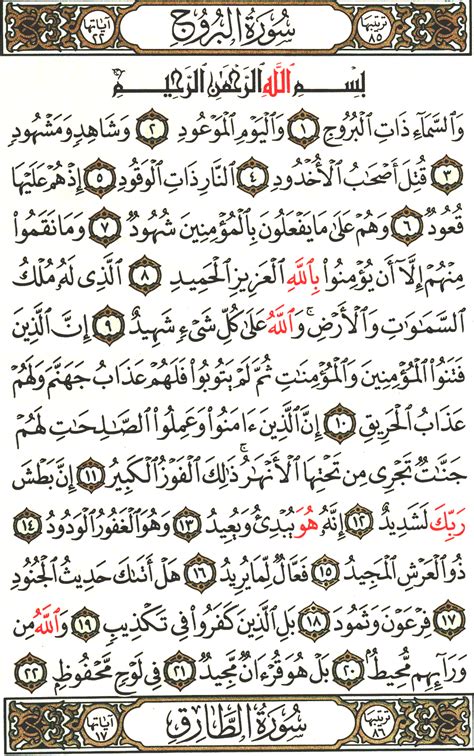 ترتيبها ٨٥ سُورَةُ الْبُرُوجِ آياتها ٢٢
بِسْمِ اللَّهِ الرَّحْمَٰنِ الرَّحِيمِ
وَالسَّمَاءِ ذَاتِ الْبُرُوجِ ١ وَالْيَوْمِ الْمَوْعُودِ ٢ وَشَاهِدٍ وَمَشْهُودٍ
٣ قُتِلَ أَصْحَٰبُ الْأُخْدُودِ ٤ النَّارِ ذَاتِ الْوَقُودِ ٥ إِذْ هُمْ عَلَيْهَا
قُعُودٌ ٦ وَهُمْ عَلَىٰ مَا يَفْعَلُونَ بِالْمُؤْمِنِينَ شُهُودٌ ٧ وَمَا نَقَمُوا
مِنْهُمْ إِلَّا أَنْ يُؤْمِنُوا بِاللَّهِ الْعَزِيزِ الْحَمِيدِ ٨ الَّذِي لَهُ مُلْكُ
السَّمَٰوَٰتِ وَالْأَرْضِ ۚ وَاللَّهُ عَلَىٰ كُلِّ شَيْءٍ شَهِيدٌ ٩ إِنَّ الَّذِينَ
فَتَنُوا الْمُؤْمِنِينَ وَالْمُؤْمِنَٰتِ ثُمَّ لَمْ يَتُوبُوا فَلَهُمْ عَذَابُ جَهَنَّمَ وَلَهُمْ
عَذَابُ الْحَرِيقِ ١٠ إِنَّ الَّذِينَ ءَامَنُوا وَعَمِلُوا الصَّٰلِحَٰتِ لَهُمْ
جَنَّٰتٌ تَجْرِي مِن تَحْتِهَا الْأَنْهَٰرُ ۚ ذَٰلِكَ الْفَوْزُ الْكَبِيرُ ١١ إِنَّ بَطْشَ
رَبِّكَ لَشَدِيدٌ ١٢ إِنَّهُ هُوَ يُبْدِئُ وَيُعِيدُ ١٣ وَهُوَ الْغَفُورُ الْوَدُودُ ١٤
ذُو الْعَرْشِ الْمَجِيدُ ١٥ فَعَّالٌ لِّمَا يُرِيدُ ١٦ هَلْ أَتَىٰكَ حَدِيثُ الْجُنُودِ
١٧ فِرْعَوْنَ وَثَمُودَ ١٨ بَلِ الَّذِينَ كَفَرُوا فِي تَكْذِيبٍ ١٩ وَاللَّهُ مِن
وَرَائِهِم مُّحِيطٌ ٢٠ بَلْ هُوَ قُرْءَانٌ مَّجِيدٌ ٢١ فِي لَوْحٍ مَّحْفُوظٍ ٢٢
ترتيبها ٨٦ سُورَةُ الطَّارِقِ آياتها ١٧